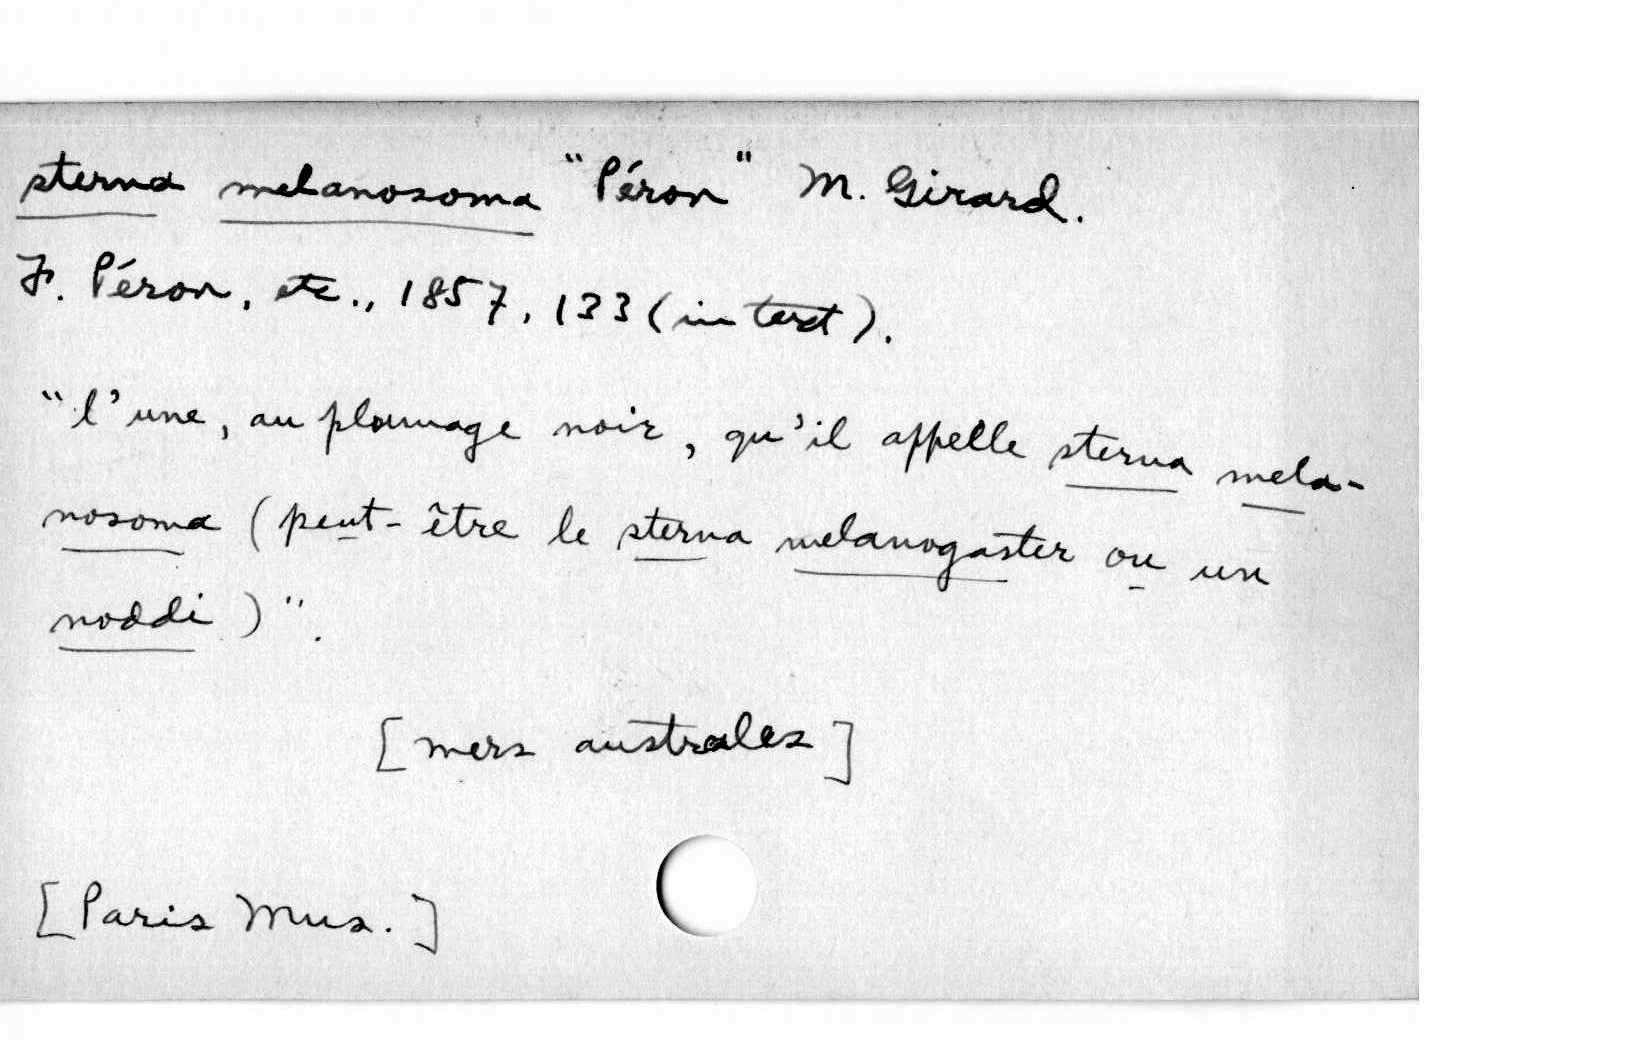 sterna melanosoma "Péron" M. Girard.
F. Péron, etc., 1857, 133 (in text).
"l'une, au plumage noir, qu'il appelle sterna mela-
nosoma (peut-être le sterna melanogaster ou un
noddi)".
[mers australes]
[Paris Mus.]